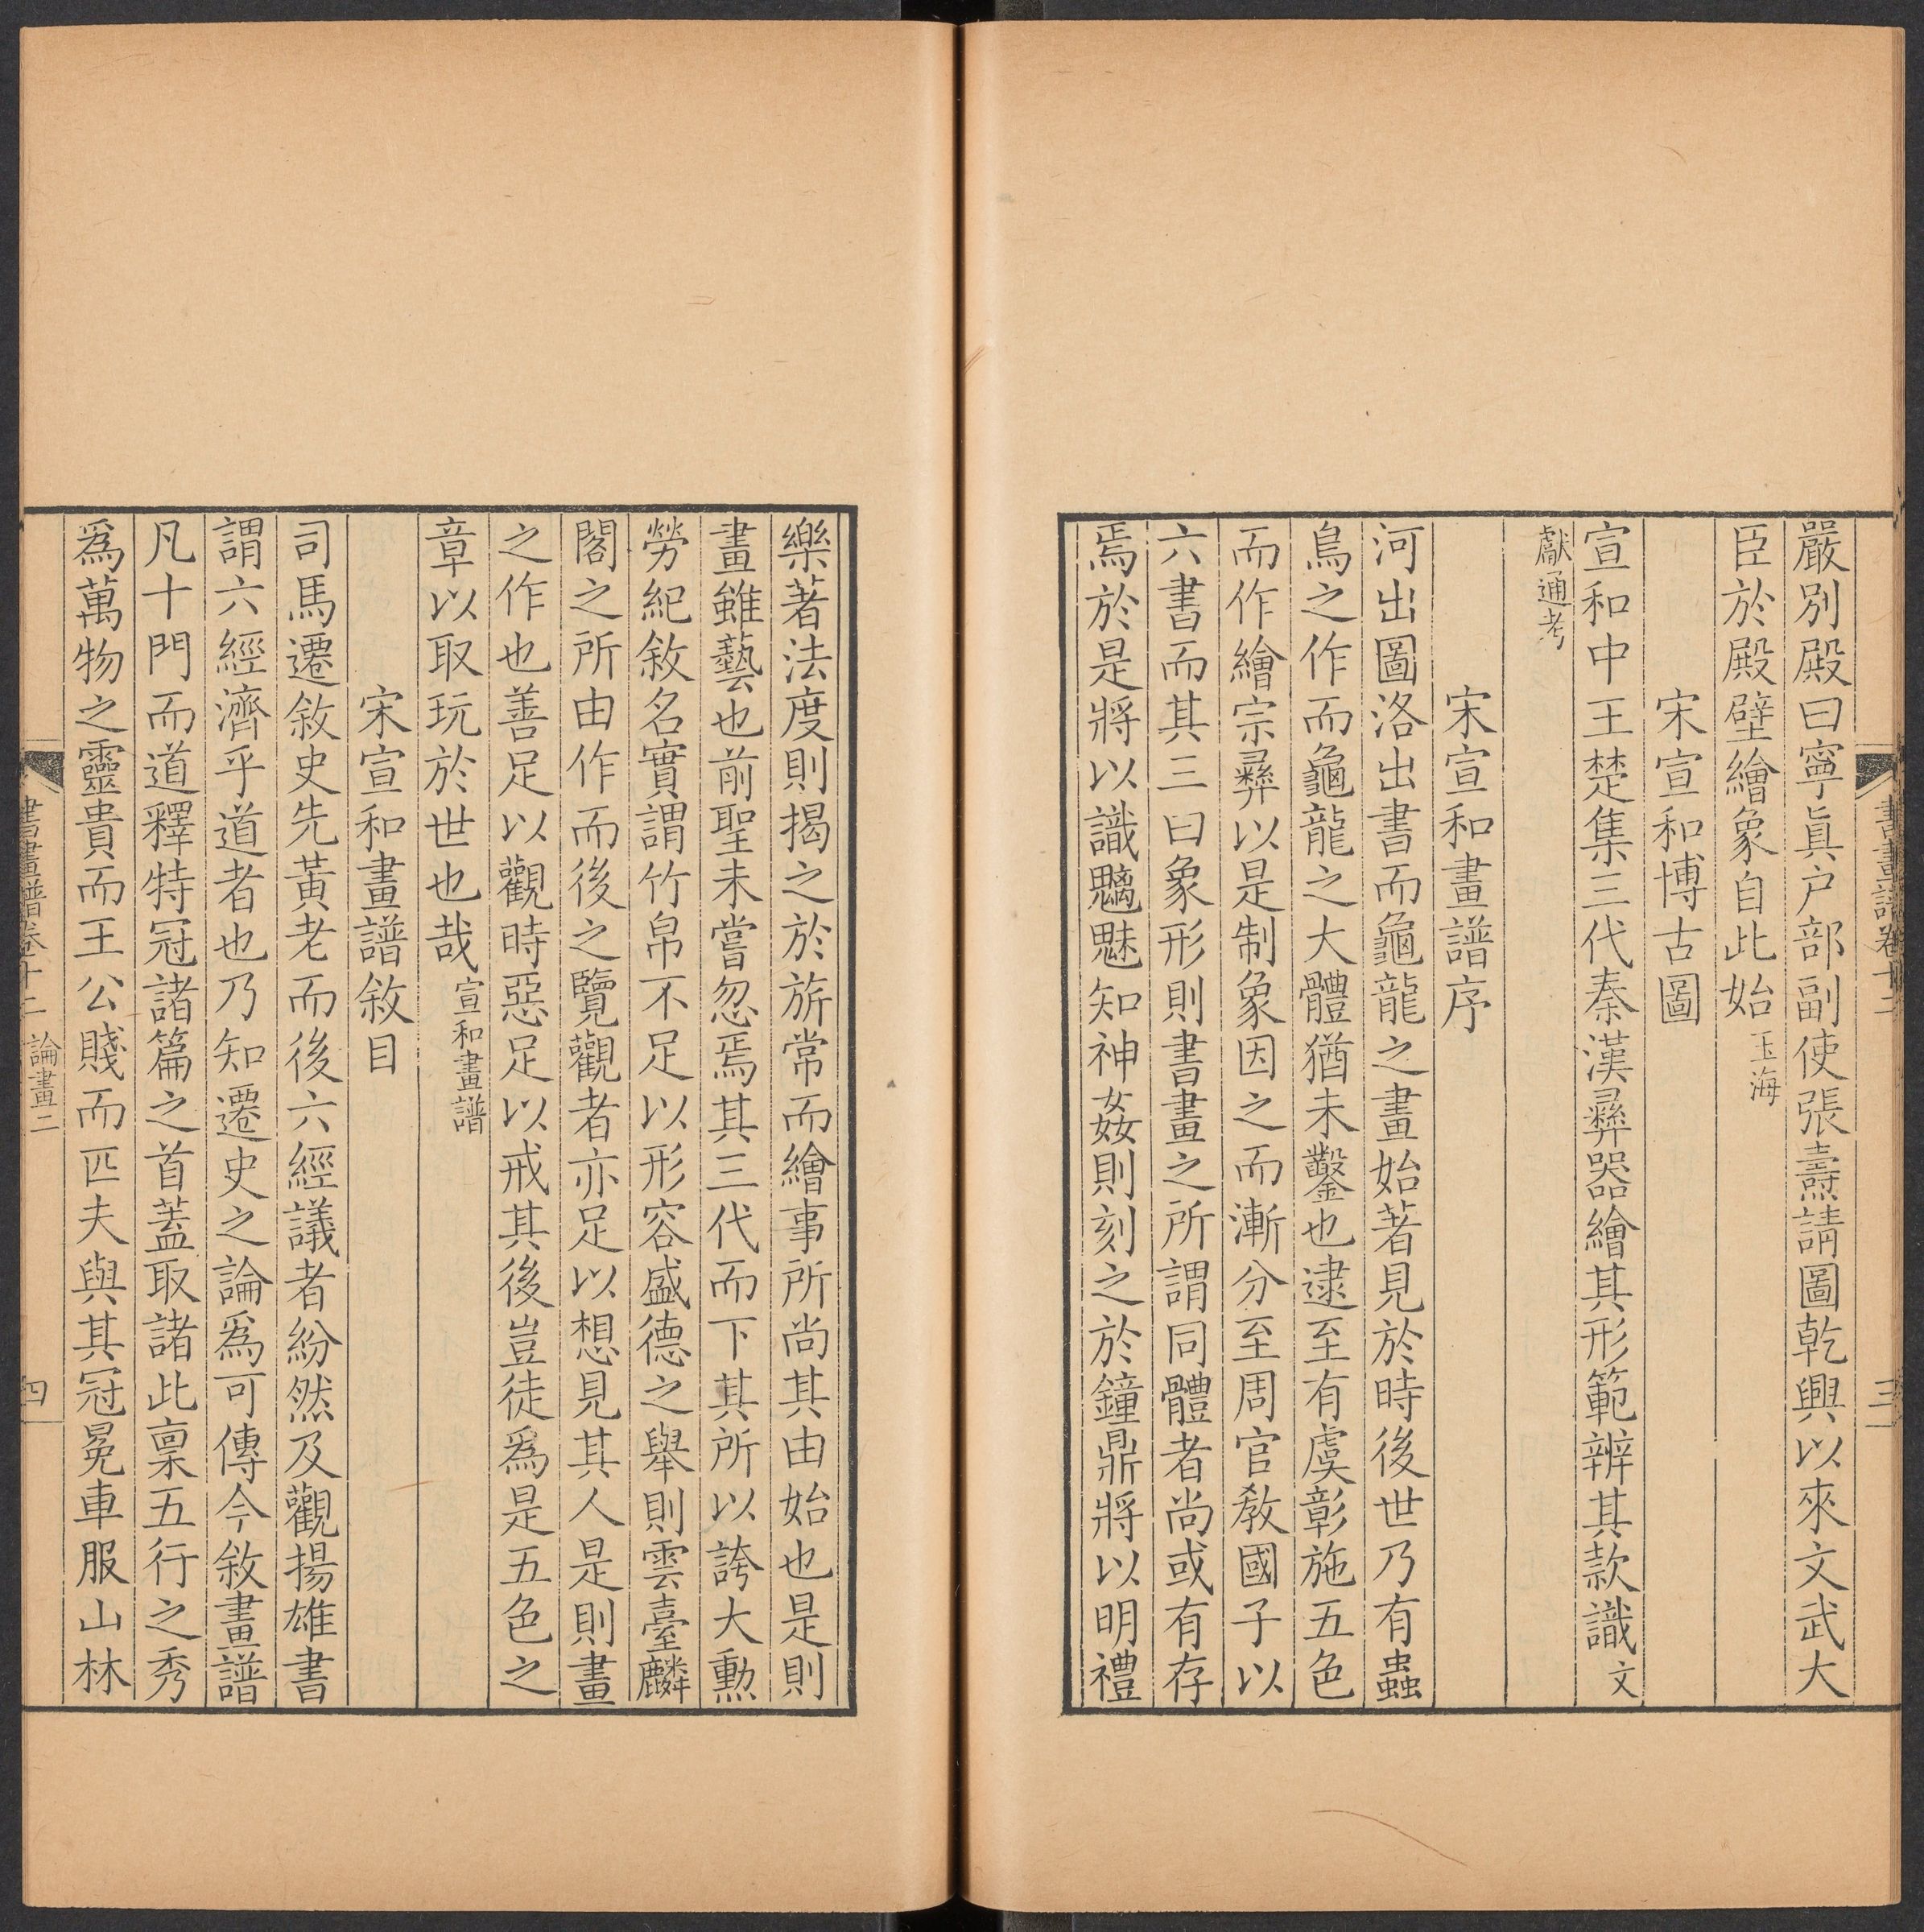 書畫譜卷十二
三
嚴別殿曰寧眞户部副使張燾請圖乾興以來文武大
臣於殿壁繪象自此始玉海
宋宣和博古圖
宣和中王楚集三代秦漢彝器繪其形範辨其款識文
獻通考
宋宣和畫譜序
河出圖洛出書而龜龍之畫始著見於時後世乃有蟲
鳥之作而龜龍之大體猶未鑿也逮至有虞彰施五色
而作繪宗彝以是制象因之而漸分至周官敎國子以
六書而其三曰象形則書畫之所謂同體者尚或有存
焉於是將以識魑魅知神姦則刻之於鐘鼎將以明禮
樂著法度則揭之於旂常而繪事所尚其由始也是則
畫雖藝也前聖未嘗忽焉其三代而下其所以誇大勲
勞紀敘名實謂竹帛不足以形容盛德之舉則雲臺麟
閣之所由作而後之覽觀者亦足以想見其人是則畫
之作也善足以觀時惡足以戒其後豈徒爲是五色之
章以取玩於世也哉宣和畫譜
宋宣和畫譜敘目
司馬遷敘史先黃老而後六經議者紛然及觀揚雄書
謂六經濟乎道者也乃知遷史之論爲可傳今敘畫譜
凡十門而道釋特冠諸篇之首蓋取諸此稟五行之秀
爲萬物之靈貴而王公賤而匹夫與其冠冕車服山林
書畫譜卷十二 論畫二
四